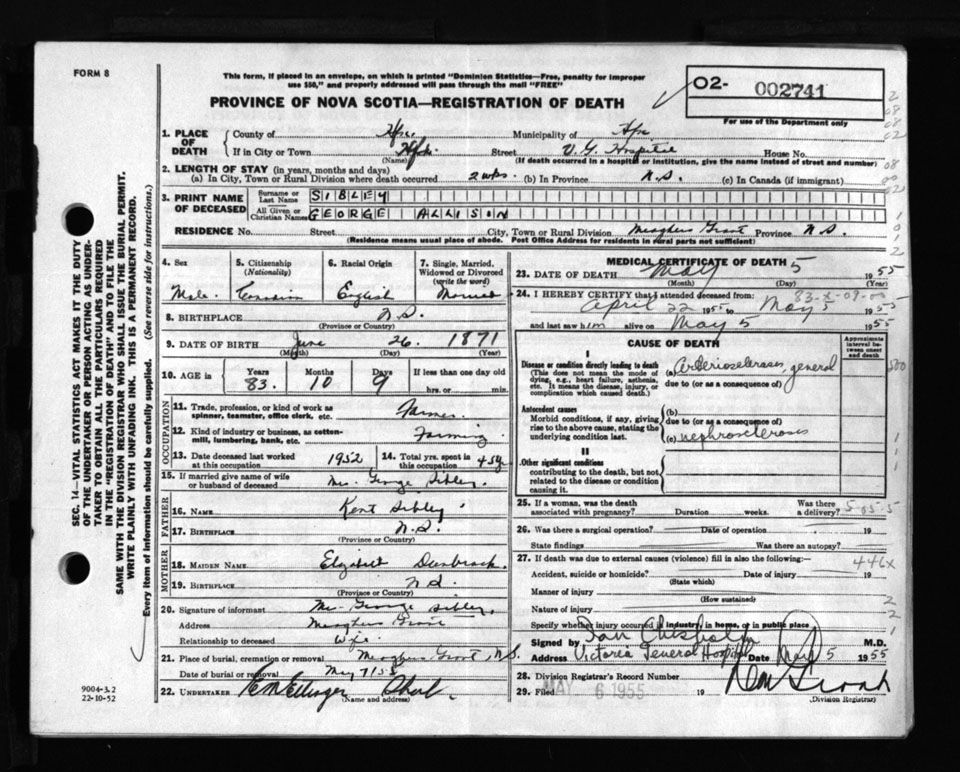 FORM 8
This form, if placed in an envelope, on which is printed "Dominion Statistics—Free, penalty for improper
use $50," and properly addressed will pass through the mail "FREE"
PROVINCE OF NOVA SCOTIA—REGISTRATION OF DEATH
O2- 002741
For use of the Department only
1. PLACE OF DEATH
County of Hfx. Municipality of Hfx
If in City or Town Hfx. Street V. G. Hospital House No.
(Name) (If death occurred in a hospital or institution, give the name instead of street and number)
2. LENGTH OF STAY (in years, months and days)
(a) In City, Town or Rural Division where death occurred 2 wks. (b) In Province N.S. (c) In Canada (if immigrant)
3. PRINT NAME OF DECEASED
Surname or Last Name SIBLEY
All Given or Christian Names GEORGE ALLISIN
RESIDENCE No. Street City, Town or Rural Division Meaghers Grant Province N.S.
(Residence means usual place of abode. Post Office Address for residents in rural parts not sufficient)
4. Sex
Male
5. Citizenship
(Nationality)
Canadian
6. Racial Origin
English
7. Single, Married, Widowed or Divorced
(write the word)
Married
8. BIRTHPLACE N.S.
(Province or Country)
9. DATE OF BIRTH June 26. 1871
(Month) (Day) (Year)
10. AGE in
Years Months Days If less than one day old
83. 10 9 hrs. or min.
OCCUPATION
11. Trade, profession, or kind of work as
spinner, teamster, office clerk, etc. Farmer
12. Kind of industry or business, as cotton-
mill, lumbering, bank, etc. Farming
13. Date deceased last worked
at this occupation 1952
14. Total yrs. spent in
this occupation 45y
15. If married give name of wife
or husband of deceased Mrs. George Sibley.
FATHER
16. NAME Kent Sibley
17. BIRTHPLACE N.S.
(Province or Country)
MOTHER
18. MAIDEN NAME Elizabet Dunbrack
19. BIRTHPLACE N.S.
(Province or Country)
20. Signature of informant Mrs George Sibley.
Address Meaghers Grant
Relationship to deceased Wife
21. Place of burial, cremation or removal Meaghers Grant, N.S.
Date of burial or removal May 7 1955
22. UNDERTAKER
(Name and address)
9004-3.2
22-10-52
SEC. 14—VITAL STATISTICS ACT MAKES IT THE DUTY
OF THE UNDERTAKER OR PERSON ACTING AS UNDER-
TAKER TO OBTAIN ALL THE PARTICULARS REQUIRED
IN THE "REGISTRATION OF DEATH" AND TO FILE THE
SAME WITH THE DIVISION REGISTRAR WHO SHALL ISSUE THE BURIAL PERMIT.
WRITE PLAINLY WITH UNFADING INK. THIS IS A PERMANENT RECORD.
Every item of information should be carefully supplied. (See reverse side for instructions.)
MEDICAL CERTIFICATE OF DEATH
23. DATE OF DEATH May 5 1955
(Month) (Day) (Year)
83-X-09-00
24. I HEREBY CERTIFY that I attended deceased from:
April 22 1955 to May 5 1955
and last saw him alive on May 5 1955
CAUSE OF DEATH
Approximate interval between onset and death
I
Disease or condition directly leading to death
(This does not mean the mode of
dying, e.g., heart failure, asthenia,
etc. It means the disease, injury, or
complication which caused death.)
(a) Arteriosclerosis, general
due to (or as a consequence of)
Antecedent causes
Morbid conditions, if any, giving
rise to the above cause, stating the
underlying condition last.
(b)
due to (or as a consequence of)
(c) nephrosclerosis
II
Other significant conditions
contributing to the death, but not
related to the disease or condition
causing it.
25. If a woman, was the death
associated with pregnancy? Duration weeks. Was there a delivery?
26. Was there a surgical operation? Date of operation 19
State findings Was there an autopsy?
27. If death was due to external causes (violence) fill in also the following:—
446x
Accident, suicide or homicide? Date of injury 19
(State which)
Manner of injury
(How sustained)
Nature of injury
Specify whether injury occurred in industry, in home, or in public place
Signed by M.D.
Address Victoria General Hospital Date May 5 1955
28. Division Registrar's Record Number
29. Filed MAY 6 1955 19
(Division Registrar)